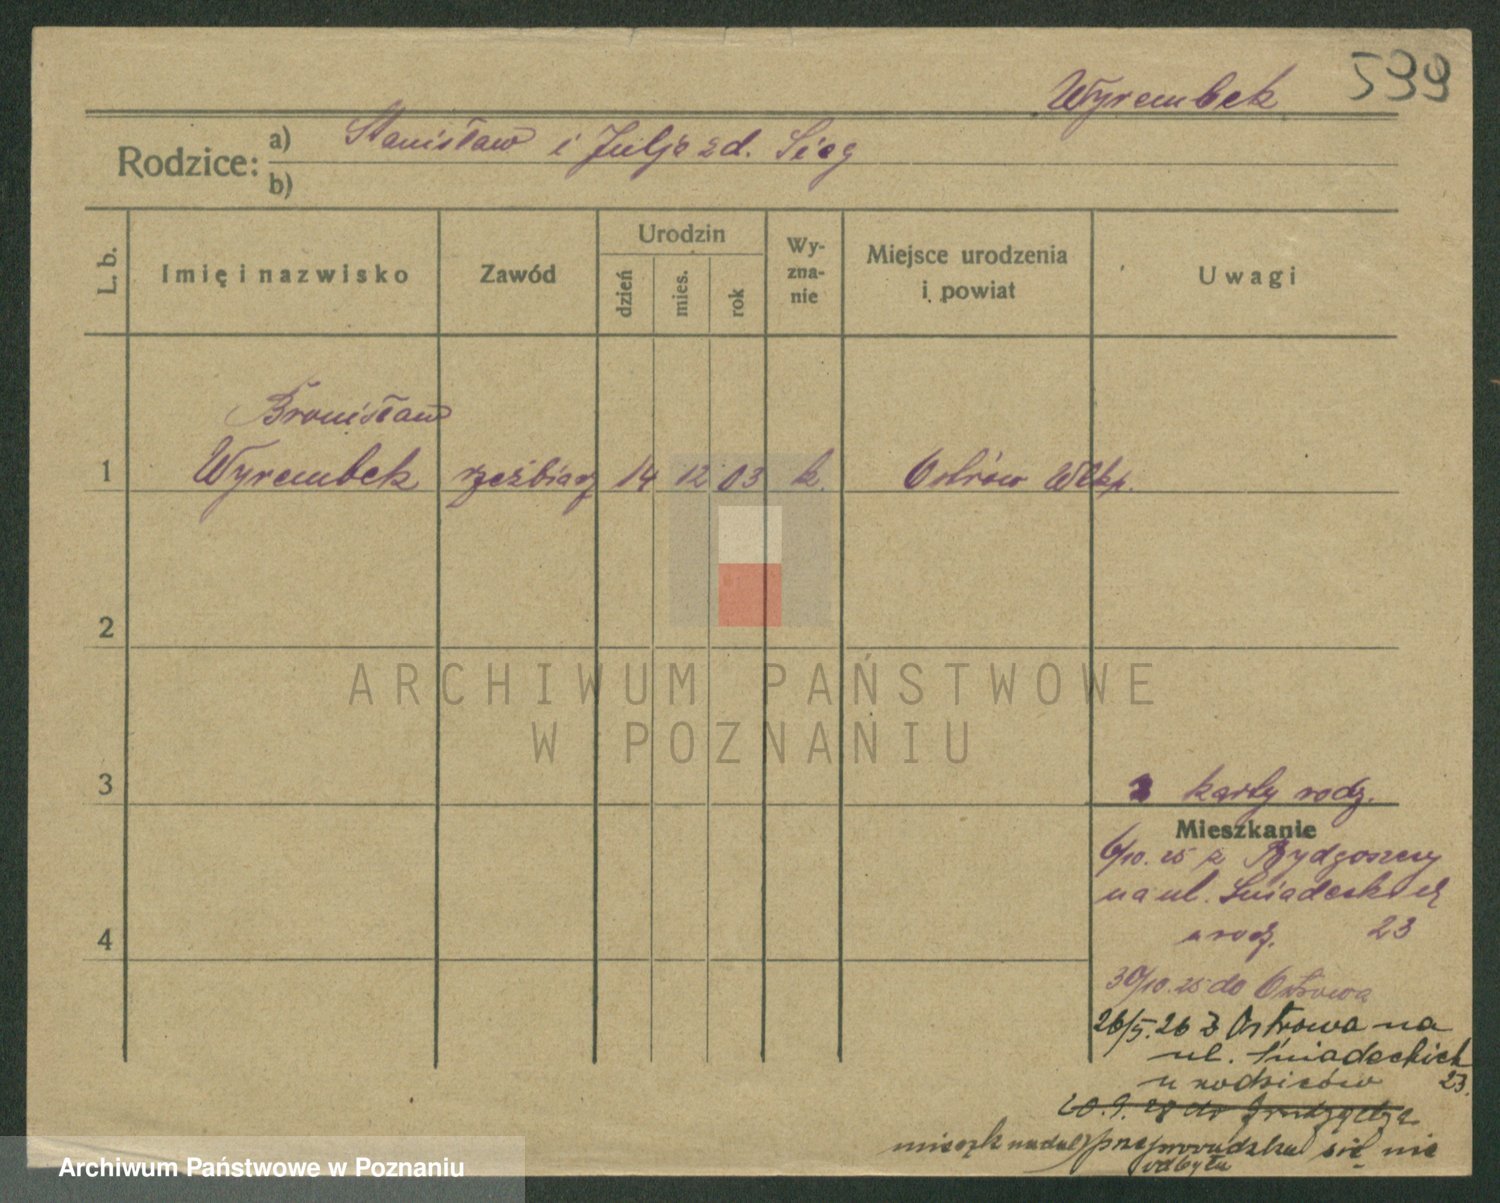 Wyrembek 599
Rodzice: a) Stanisław i Julja zd. Sieg
b)
L. b. Imię i nazwisko Zawód Urodzin Wy-zna-nie Miejsce urodzenia i powiat Uwagi
dzień mies. rok
Bronisław
1 Wyrembek rzeźbiarz 14 12 03 k. Ostrów Wlkp.
2
ARCHIWUM PAŃSTWOWE
W POZNANIU
3 karty rodz.
Mieszkanie
6/10.25 z Bydgoszczy
na ul. Śniadeckich
u rodz. 23
4
30/10.25 do Ostrowa
26/5.26 z Ostrowa na
ul. Śniadeckich
u rodziców 23.
20.9.28 do Grudziądza
mieszk nadal, przeprowadzka się nie
odbyła
Archiwum Państwowe w Poznaniu